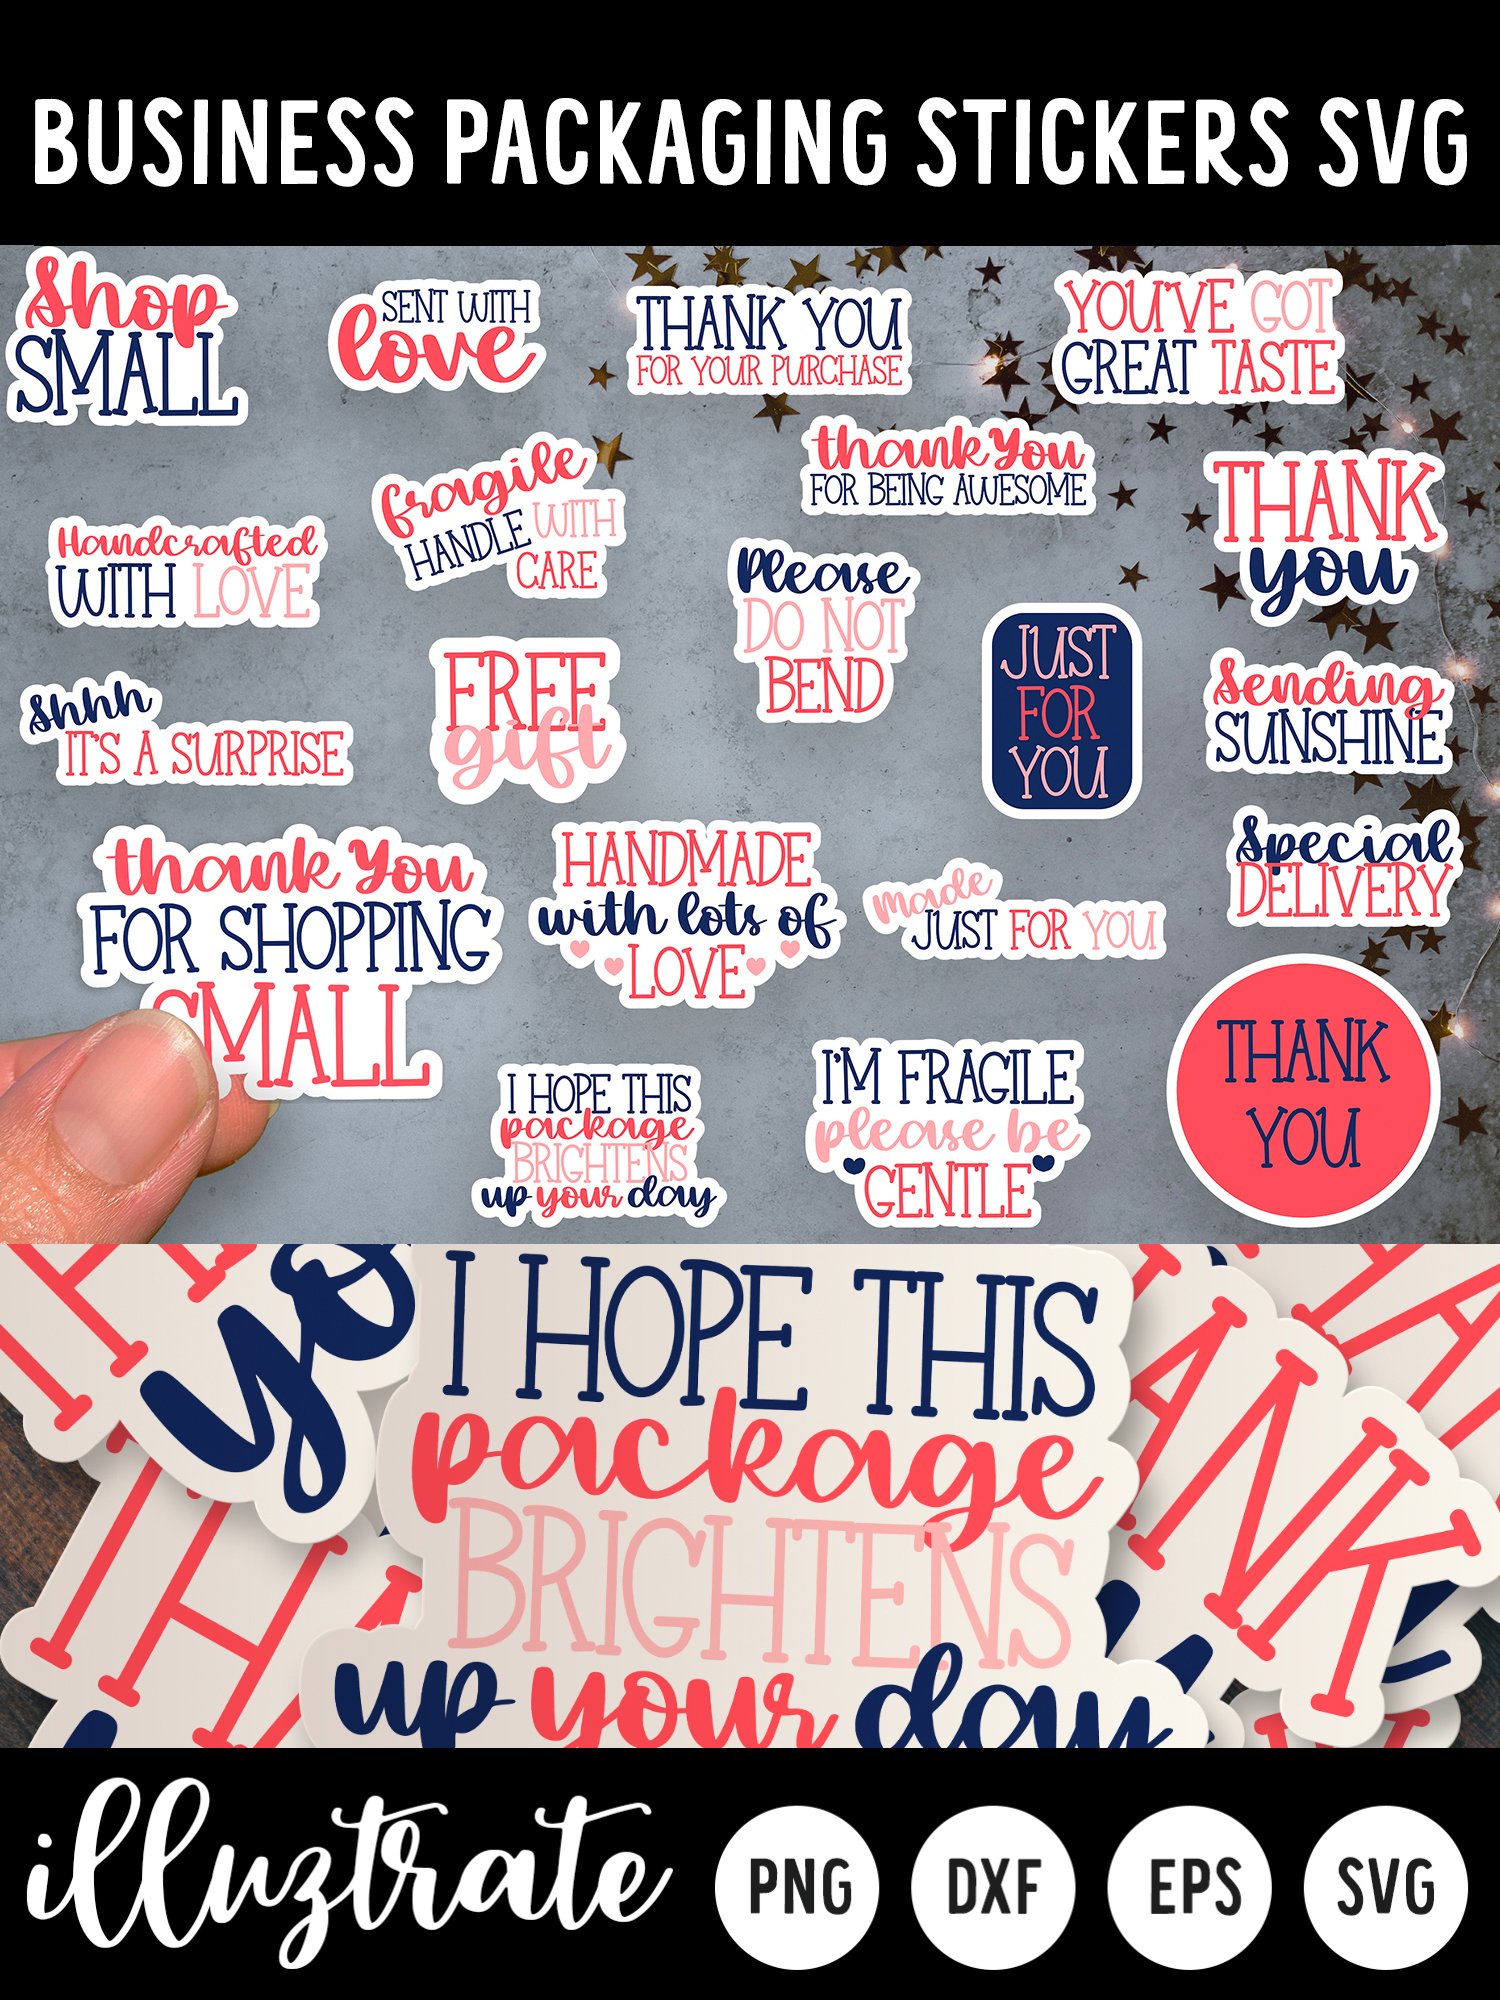 BUSINESS PACKAGING STICKERS SVG
Shop
SMALL
SENT WITH
love
THANK YOU
FOR YOUR PURCHASE
YOU'VE GOT
GREAT TASTE
fragile
HANDLE WITH
CARE
thank You
FOR BEING AWESOME
THANK
you
Handcrafted
WITH LOVE
Please
DO NOT
BEND
JUST
FOR
YOU
Shhh
IT'S A SURPRISE
FREE
gift
Sending
SUNSHINE
thank You
FOR SHOPPING
SMALL
HANDMADE
with lots of
LOVE
made
JUST FOR YOU
Special
DELIVERY
I HOPE THIS
package
BRIGHTENS
up your day
I'M FRAGILE
please be
GENTLE
THANK
YOU
I HOPE THIS
package
BRIGHTENS
up your day
illuztrate
PNG
DXF
EPS
SVG